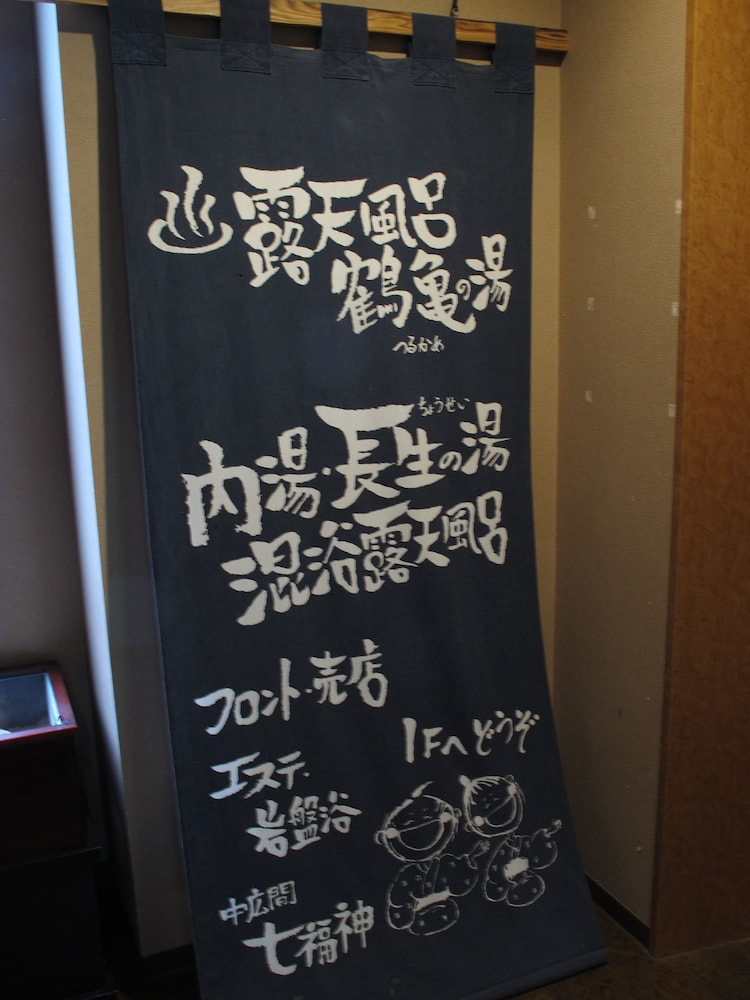 ♨露天風呂
鶴亀の湯
つるかめ
ちょうせい
内湯・長生の湯
混浴露天風呂
フロント・売店
1Fへどうぞ
エステ・
岩盤浴
中広間
七福神